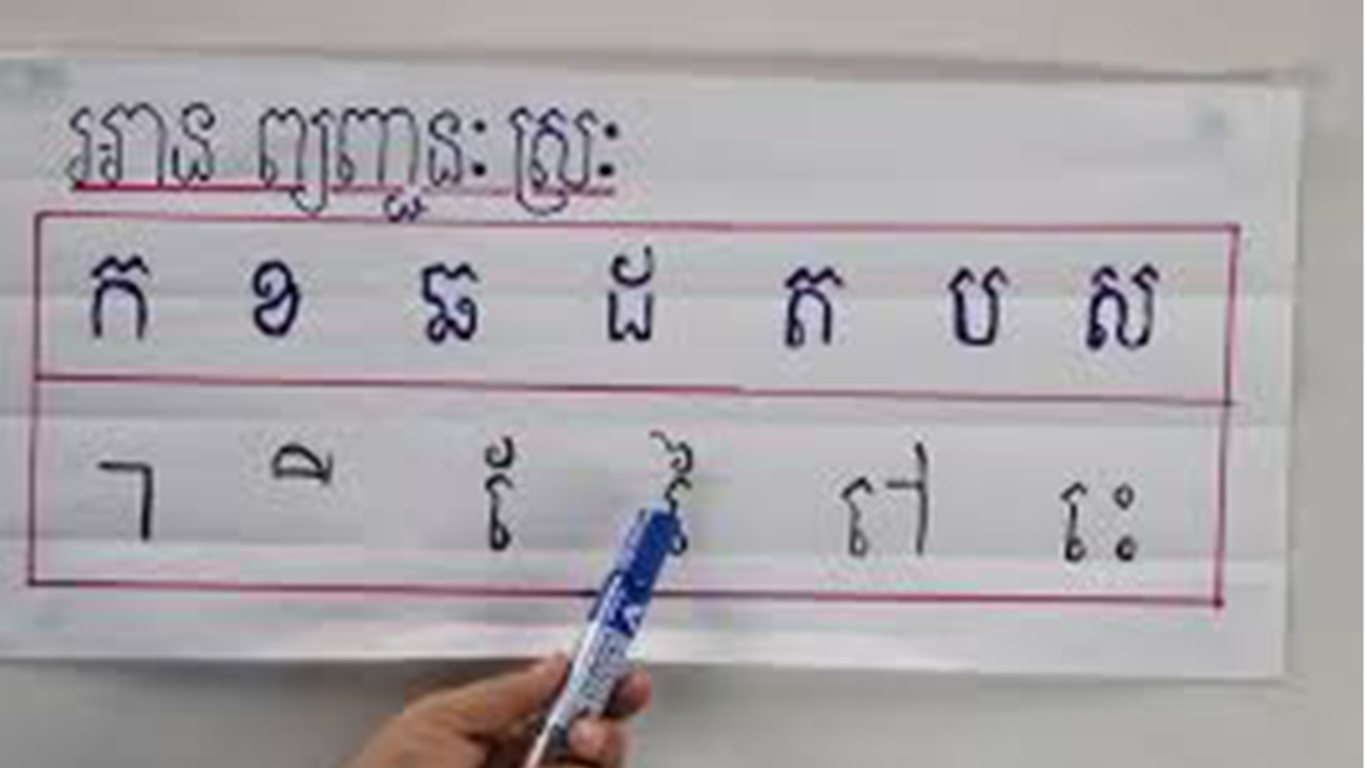 អាន ព្យញ្ជនៈ ស្រៈ
ក ខ ឆ ដ ត ប ស
ា ី ែ ៃ ៅ េះ